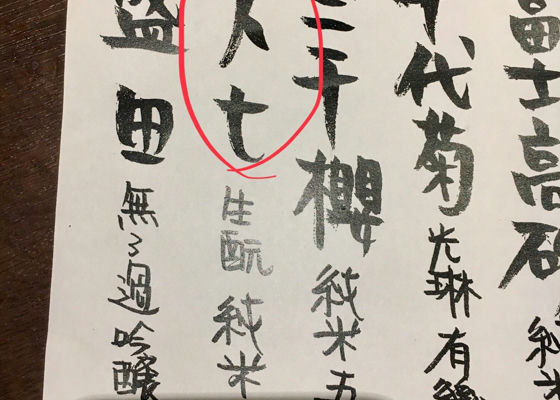 富士高砂 純米
千代菊 光琳 有機
三千櫻 純米五
大七 生酛 純米
盛田 無ろ過 吟醸